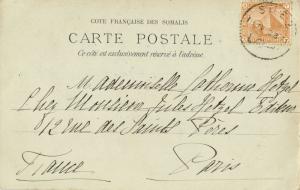 COTE FRANÇAISE DES SOMALIS
CARTE POSTALE
Ce côté est exclusivement réservé à l'adresse.
Mademoiselle Catherine Hetzel
Chez Monsieur Jules Hetzel Editeur
12 rue des Saints Pères
France Paris